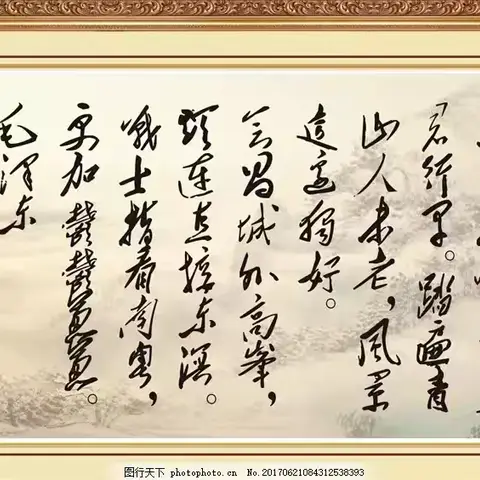 「君行早。踏遍青
山人未老,风景
這边独好。
会昌城外高峯,
颠连直接东溟。
战士指看南粤,
更加鬱鬱葱葱。
毛泽东
图行天下 photophoto.cn No.20170621084312538393